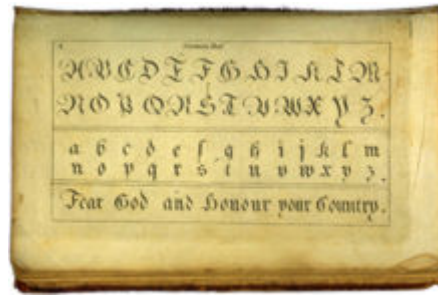 A B C D E F G H I K L M
N O P Q R S T U W X Y Z.
a b c d e f g h i j k l m
n o p q r s t u v w x y z.
Fear God and Honour your Country.